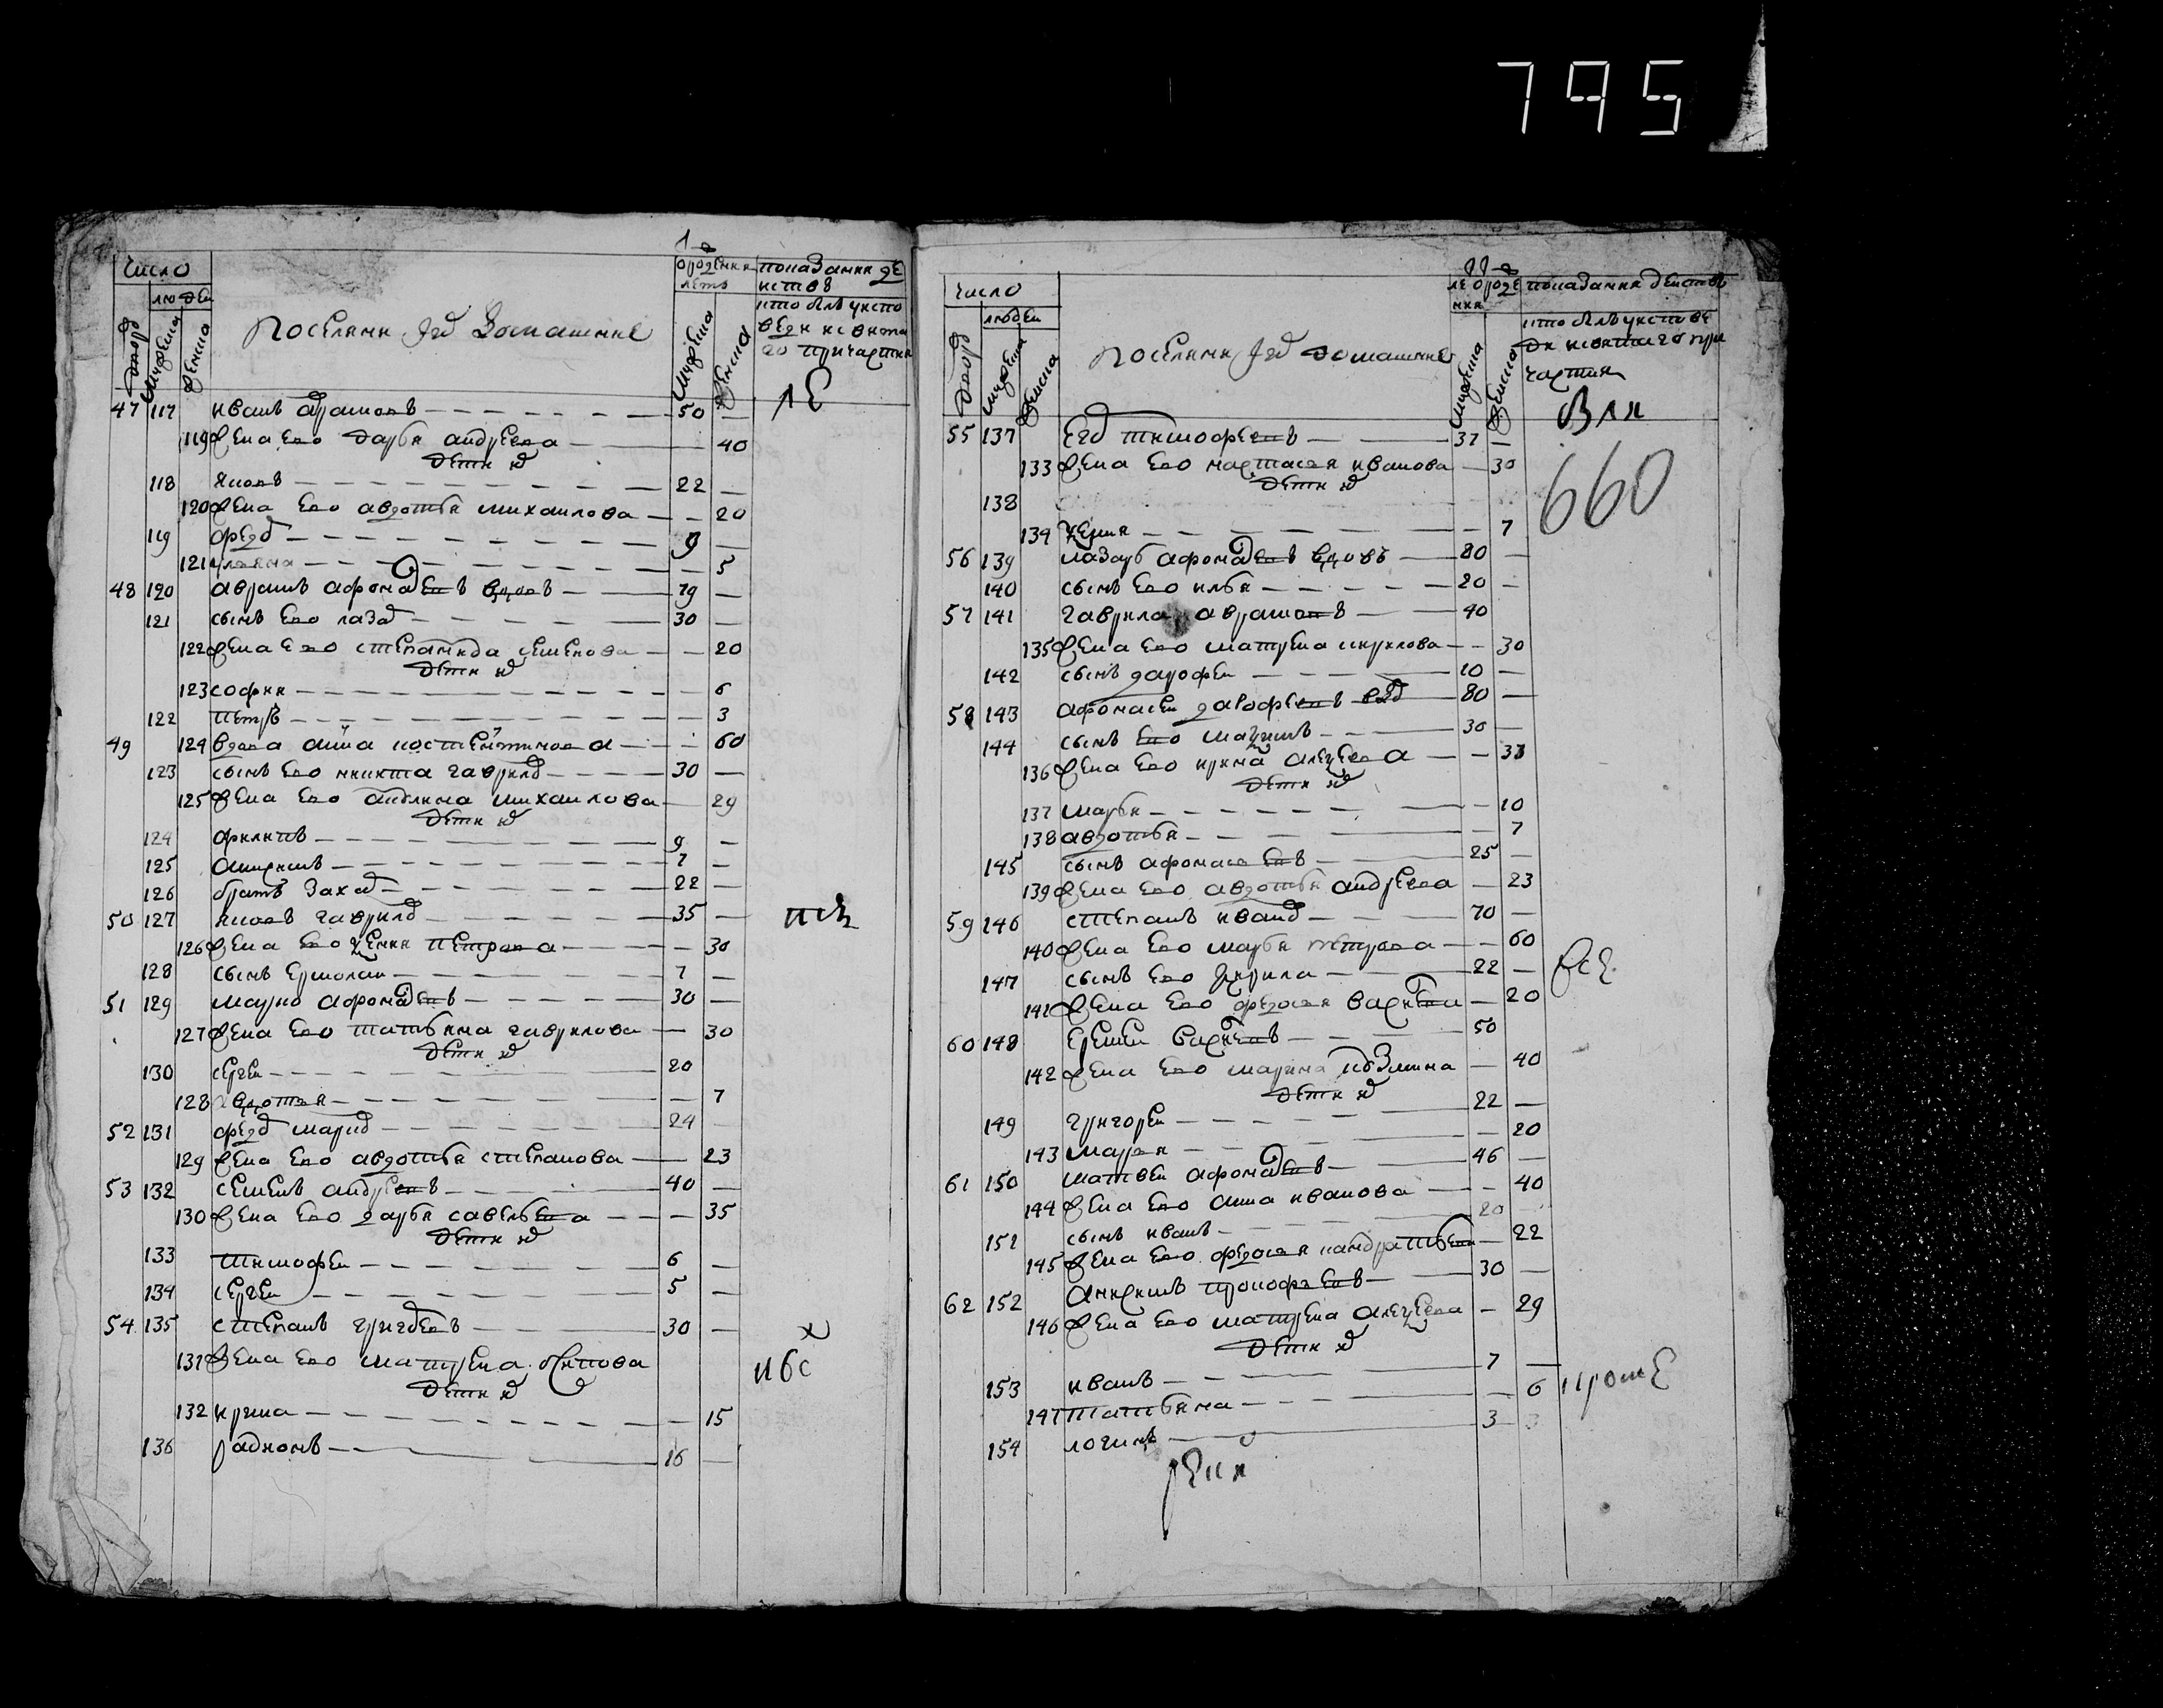 795
число
людей
дворо
мужеска
женска
поселяня и их домашние
от рождения
лета
мужеска
женска
показание де
иство
кто былъ у испо
веди и святаго
причастия
47 117 иванъ абрамовъ 50
119 жена ево дарья андреева 40
дети их
118 яковъ 22
120 жена ево авдотья михаилова 20
119 федор 9
121 ульяна 5
48 120 аврамъ афонасевъ вдовъ 79
121 сынъ ево лазар 30
122 жена ево степанида семенова 20
дети их
123 софия 6
122 петръ 3
49 124 вдова анна костентинова 60
123 сынъ ево никита гаврилов 30
125 жена ево акулина михаилова 29
дети их
124 филипъ 9
125 анисимъ 7
126 братъ захар 22
50 127 яковъ гаврилов 35
126 жена ево ксения петрова 30
128 сынъ ермолаи 7
51 129 марко афонасевъ 30
127 жена ево татьяна гаврилова 30
дети их
130 сергеи 20
128 авдотья 7
52 131 федор марков 24
129 жена ево авдотья степанова 23
53 132 семенъ андреевъ 40
130 жена ево дарья савельева 35
дети их
133 тимофеи 6
134 сергеи 5
54 135 степанъ григоревъ 30
131 жена ево матрена осипова
дети их
132 ирина 15
136 радионъ 16
число
людеи
дворо
мужеска
женска
поселяня и их домашние
мужеска
женска
показание деиство
кто былъ у испове
ди и святаго при
частия
660
55 137 егор тимофеевъ 37
133 жена ево настасья иванова 30
дети их
138
134 ксения 7
56 139 лазарь афонасевъ вдовъ 80
140 сынъ ево илья 20
57 141 гаврила аврамовъ 40
135 жена ево матрена кирилова 30
142 сынъ дарофеи 10
58 143 афонасеи дарофеевъ вдов 80
144 сынъ ево максимъ 30
136 жена ево ирина алексеева 33
дети их
137 марья 10
138 авдотья 7
145 сынъ афонасевъ 25
139 жена ево авдотья андреева 23
59 146 степанъ иванов 70
140 жена ево марья петрова 60
147 сынъ ево кирила 22
141 жена ево федосья васильева 20
60 148 еремеи васильевъ 50
142 жена ево марина кузмина 40
дети их
149 григореи 22
143 марья 20
61 150 матвеи афонасевъ 46
144 жена ево анна иванова 40
151 сынъ иванъ 20
145 жена ево федосья кандратьева 22
62 152 анисимъ прокофьевъ 30
146 жена ево матрена алексеева 29
дети их
153 иванъ 7
147 татьяна 6
154 логинъ 3